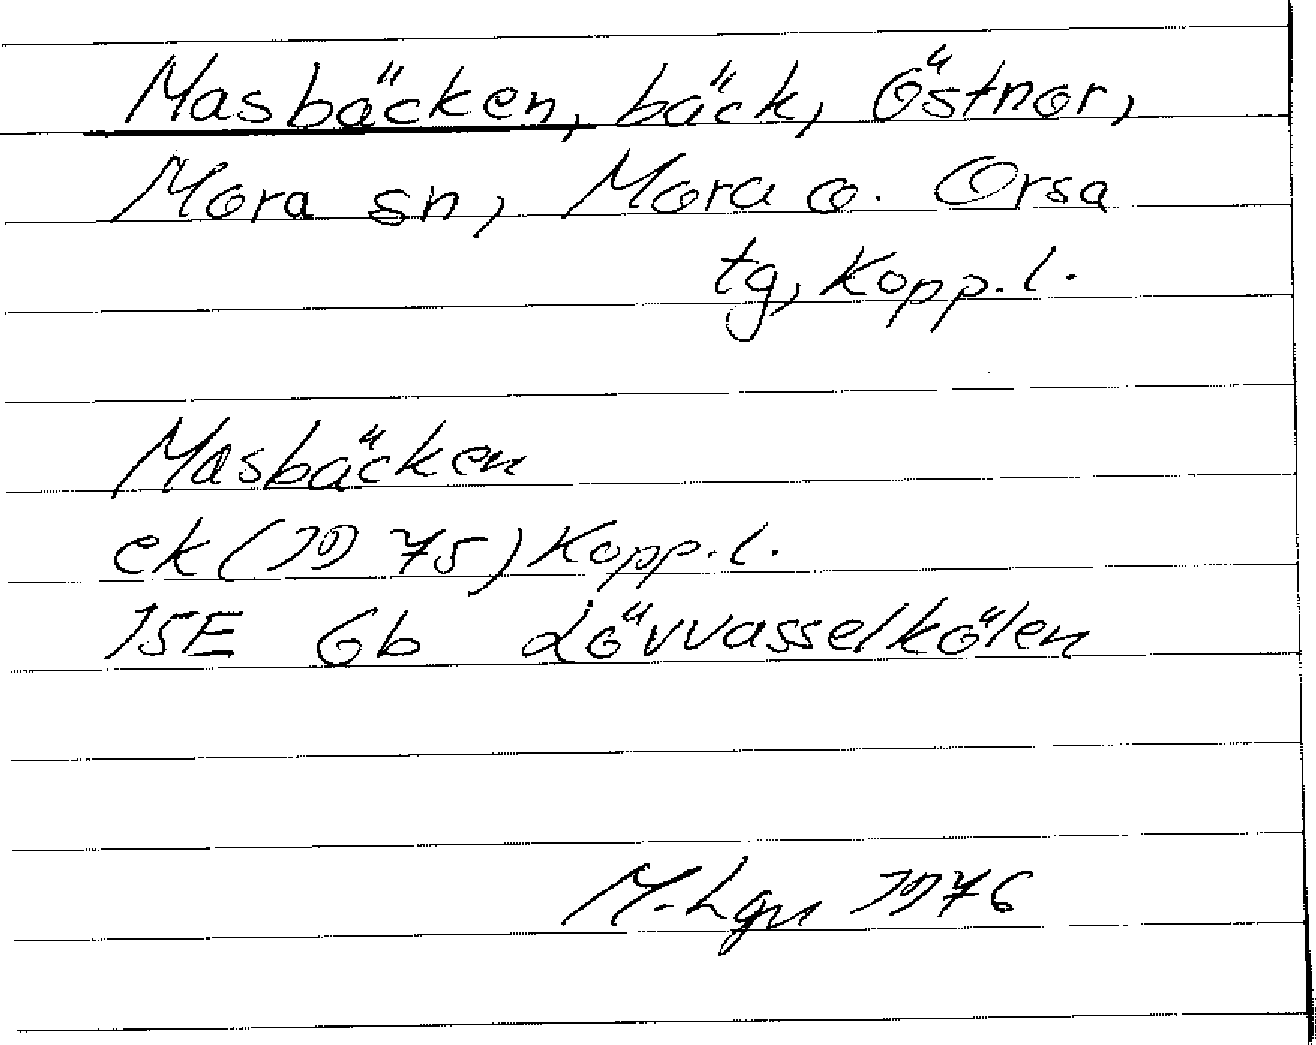 Masbäcken, bäck, Östnor,
Mora sn, Mora o. Orsa
tg, Kopp. l.
Masbäcken
ek (1975) Kopp. l.
15E 6b Lövvasselkölen
M. Lgn 1976